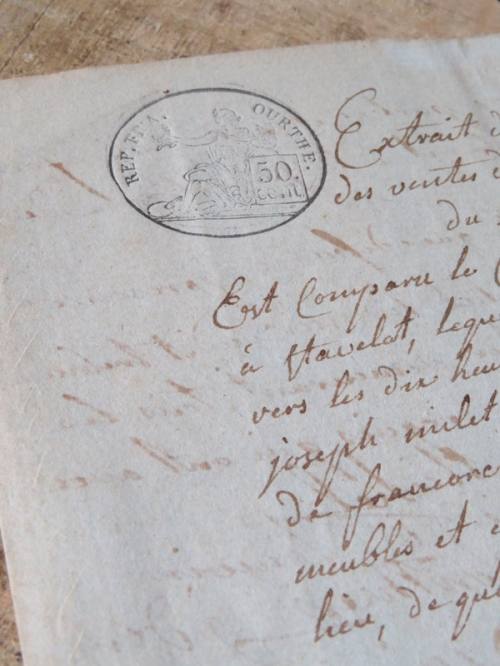 REP. FRA. OURTHE.
50.
cent.
Extrait
des ventes
du
Est Comparu le
à Stavelot, lequ
vers les dix heu
joseph milet
de francorc
meubles et
lieu, de quel